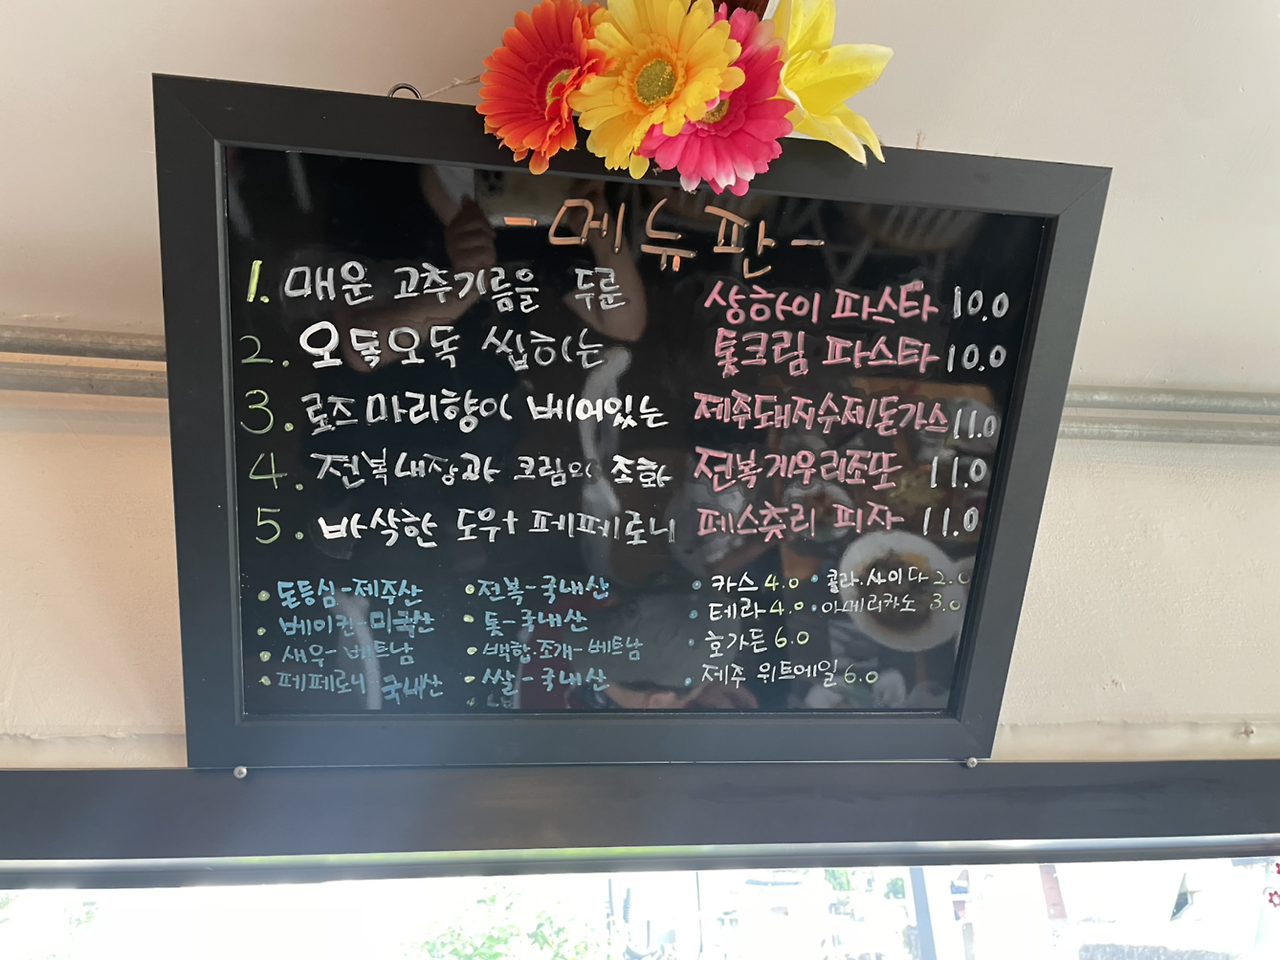 -메뉴판-
1. 매운 고추기름을 두룬 상하이 파스타 10.0
2. 오독오독 씹히는 톳크림 파스타 10.0
3. 로즈마리향이 베어있는 제주돼지수제돈가스 11.0
4. 전복내장과 크림의 조화 전복게우리조또 11.0
5. 바삭한 도우+페페로니 페스츄리 피자 11.0
• 돈등심-제주산 • 전복-국내산 • 카스 4.0 • 콜라.사이다 2.0
• 베이컨-미국산 • 톳-국내산 • 테라 4.0 • 아메리카노 3.0
• 새우-베트남 • 백합.조개-베트남 • 호가든 6.0
• 페페로니-국내산 • 쌀-국내산 • 제주 위트에일 6.0